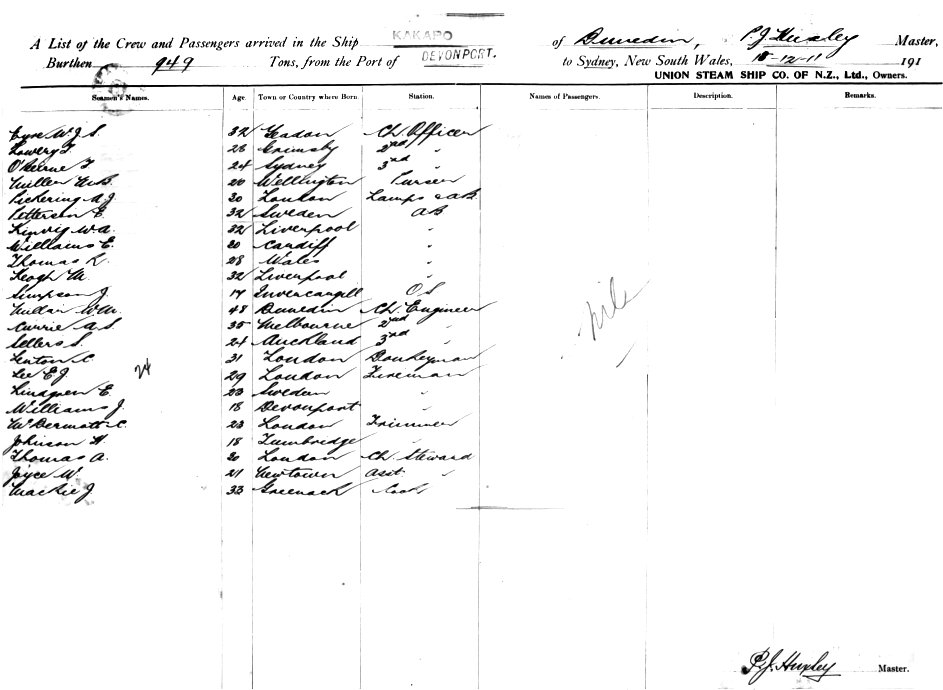 A List of the Crew and Passengers arrived in the Ship KAKAPO of Dunedin, P. J. Huxley Master,
Burthen 949 Tons, from the Port of DEVONPORT. to Sydney, New South Wales, 15-12-11 191
UNION STEAM SHIP CO. OF N.Z., Ltd., Owners.
Seamen's Names. Age. Town or Country where Born Station. Names of Passengers. Description. Remarks.
Eyre W. J. S. 32 Ch. Officer
Lowery T. 26 Grimsby 2nd "
O'Beirne T 24 Sydney 3rd "
Miller 20 Wellington Purser
Pickering A. J. 30 London Lamps & AB.
Petterson E. 32 Sweden AB
Kinvig W. A. 32 Liverpool "
Williams E. 30 Cardiff "
Thomas R. 28 Wales "
Keogh M. 32 Liverpool "
Simpson J. 17 Invercargill O.S.
Millar W. M. 48 Dunedin Ch. Engineer
Currie A. S. 35 Melbourne 2nd "
Sellers S. 24 Auckland 3rd "
Fenton C. 31 London Donkeyman
Lee E. J. 29 London Fireman
24
Lindgren E. 23 Sweden "
Williams J. 18 Devonport "
McDermott C. 23 London Trimmer
Johnson H. 18 Tunbridge "
Thomas A. 30 London Ch. Steward
Joyce W. 21 Newtown Asst. "
Mackie J. 33 Greenock Cook
nil
P. J. Huxley Master.